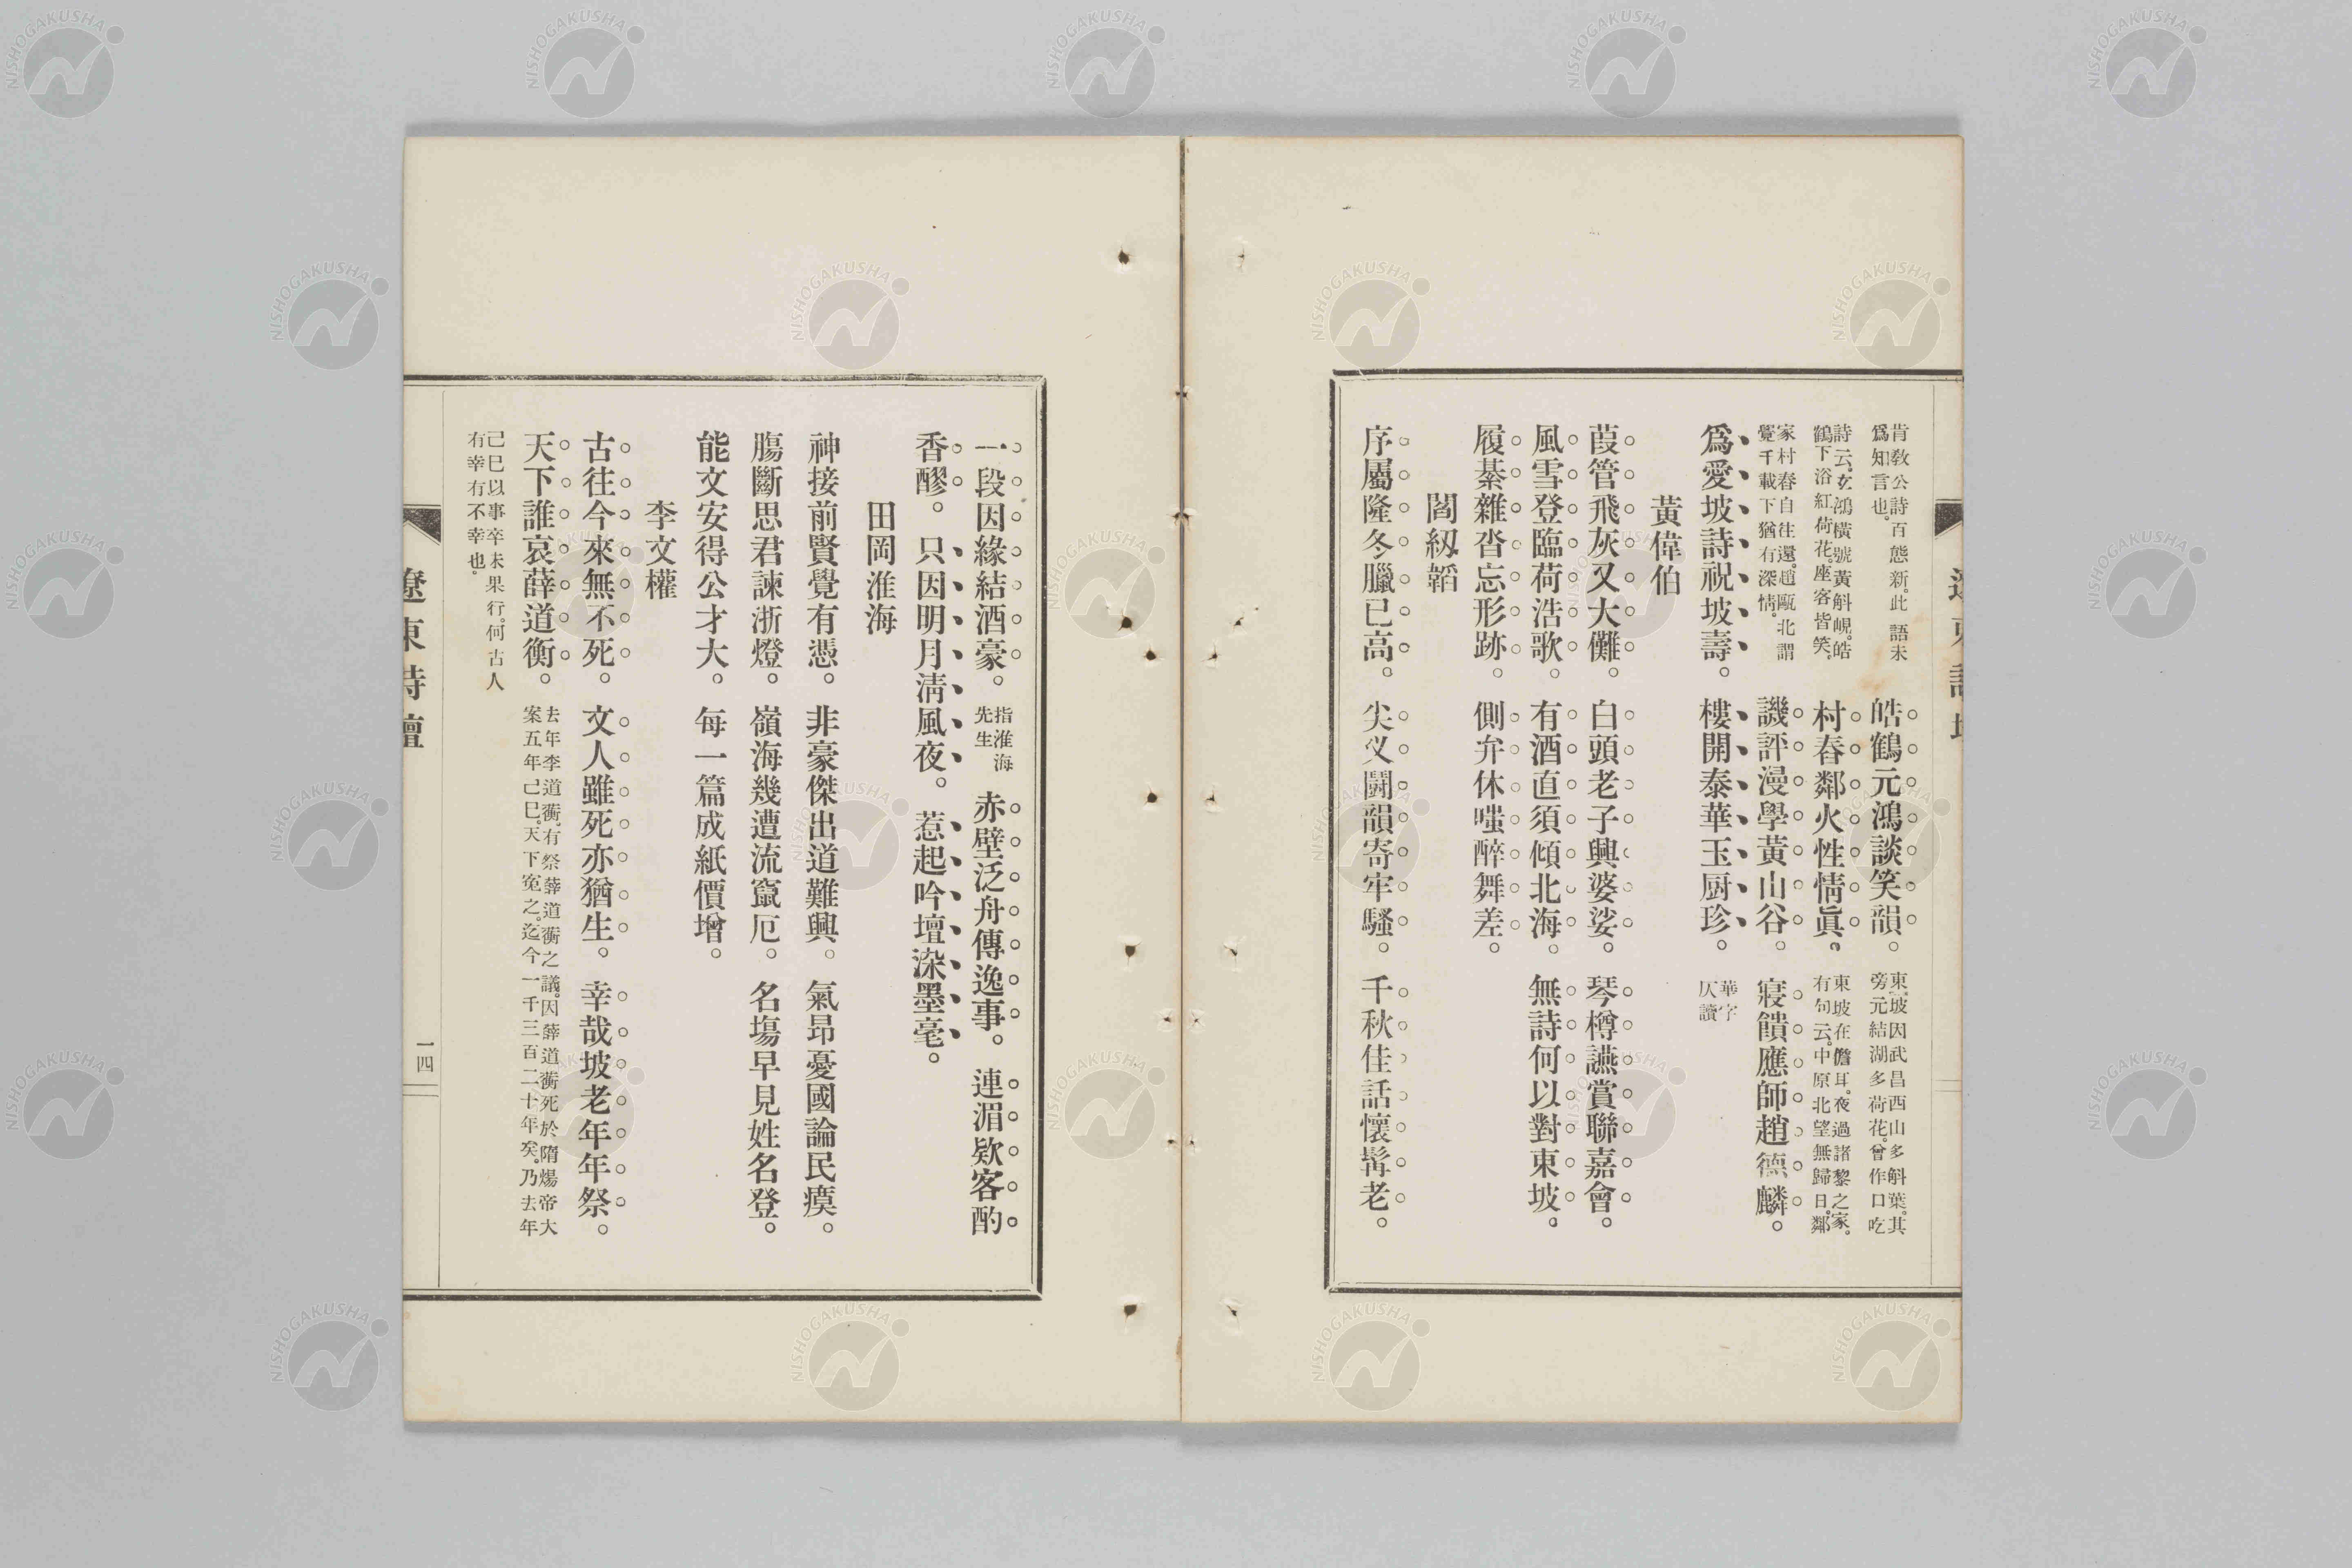 肯敎公詩百態新。此語未
爲知言也。
皓鶴元鴻談笑韻。
東坡因武昌西山多斛葉。其
旁元結湖多荷花。曾作口吃
詩云。玄鴻橫號黃斛峴。皓
鶴下浴紅荷花。座客皆笑。
村舂鄰火性情眞。
東坡在儋耳。夜過諸黎之家。
有句云。中原北望無歸日。鄰
家村舂自往還。趙甌北謂
覺千載下猶有深情。
譏評漫學黃山谷。寢饋應師趙德麟。
爲愛坡詩祝坡壽。樓開泰華玉厨珍。
華字
仄讀
黃偉伯
葭管飛灰又大儺。白頭老子興婆娑。琴樽讌賞聯嘉會。
風雪登臨荷浩歌。有酒直須傾北海。無詩何以對東坡。
履綦雜沓忘形跡。側弁休嗤醉舞差。
閻紉韜
序屬隆冬臘已高。尖叉鬪韻寄牢騷。千秋佳話懷髯老。
一段因緣結酒豪。
指淮海
先生
赤壁泛舟傳逸事。連湄欵客酌
香醪。只因明月淸風夜。惹起吟壇染墨毫。
田岡淮海
神接前賢覺有憑。非豪傑出道難興。氣昂憂國論民瘼。
膓斷思君諫浙燈。嶺海幾遭流竄厄。名塲早見姓名登。
能文安得公才大。每一篇成紙價增。
李文權
古往今來無不死。文人雖死亦猶生。幸哉坡老年年祭。
天下誰哀薛道衡。
去年李道衡。有祭薛道衡之議。因薛道衡死於隋煬帝大
案五年己巳。天下寃之。迄今一千三百二十年矣。乃去年
己巳以事卒未果行。何古人
有幸有不幸也。
遼東詩壇
一四
NISHOGAKUSHA